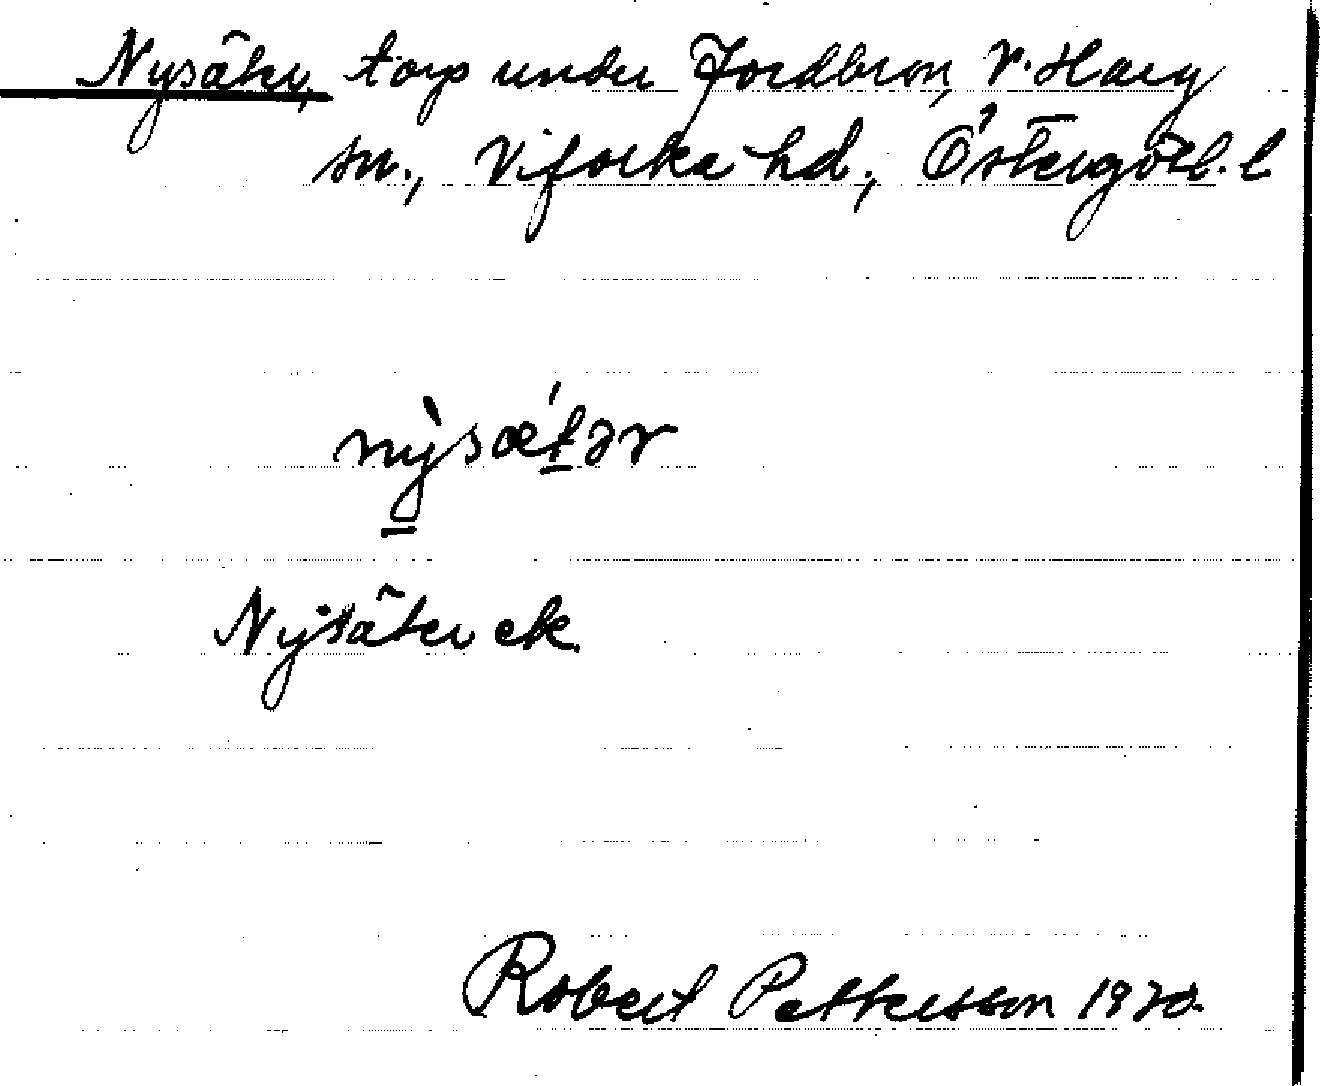 Nysäter, torp under Jordbron, V. Harg
sn., Vifolka hd., Östergötl. l
nỳsǽtər
Nysäter ek.
Robert Pettersson 1920.